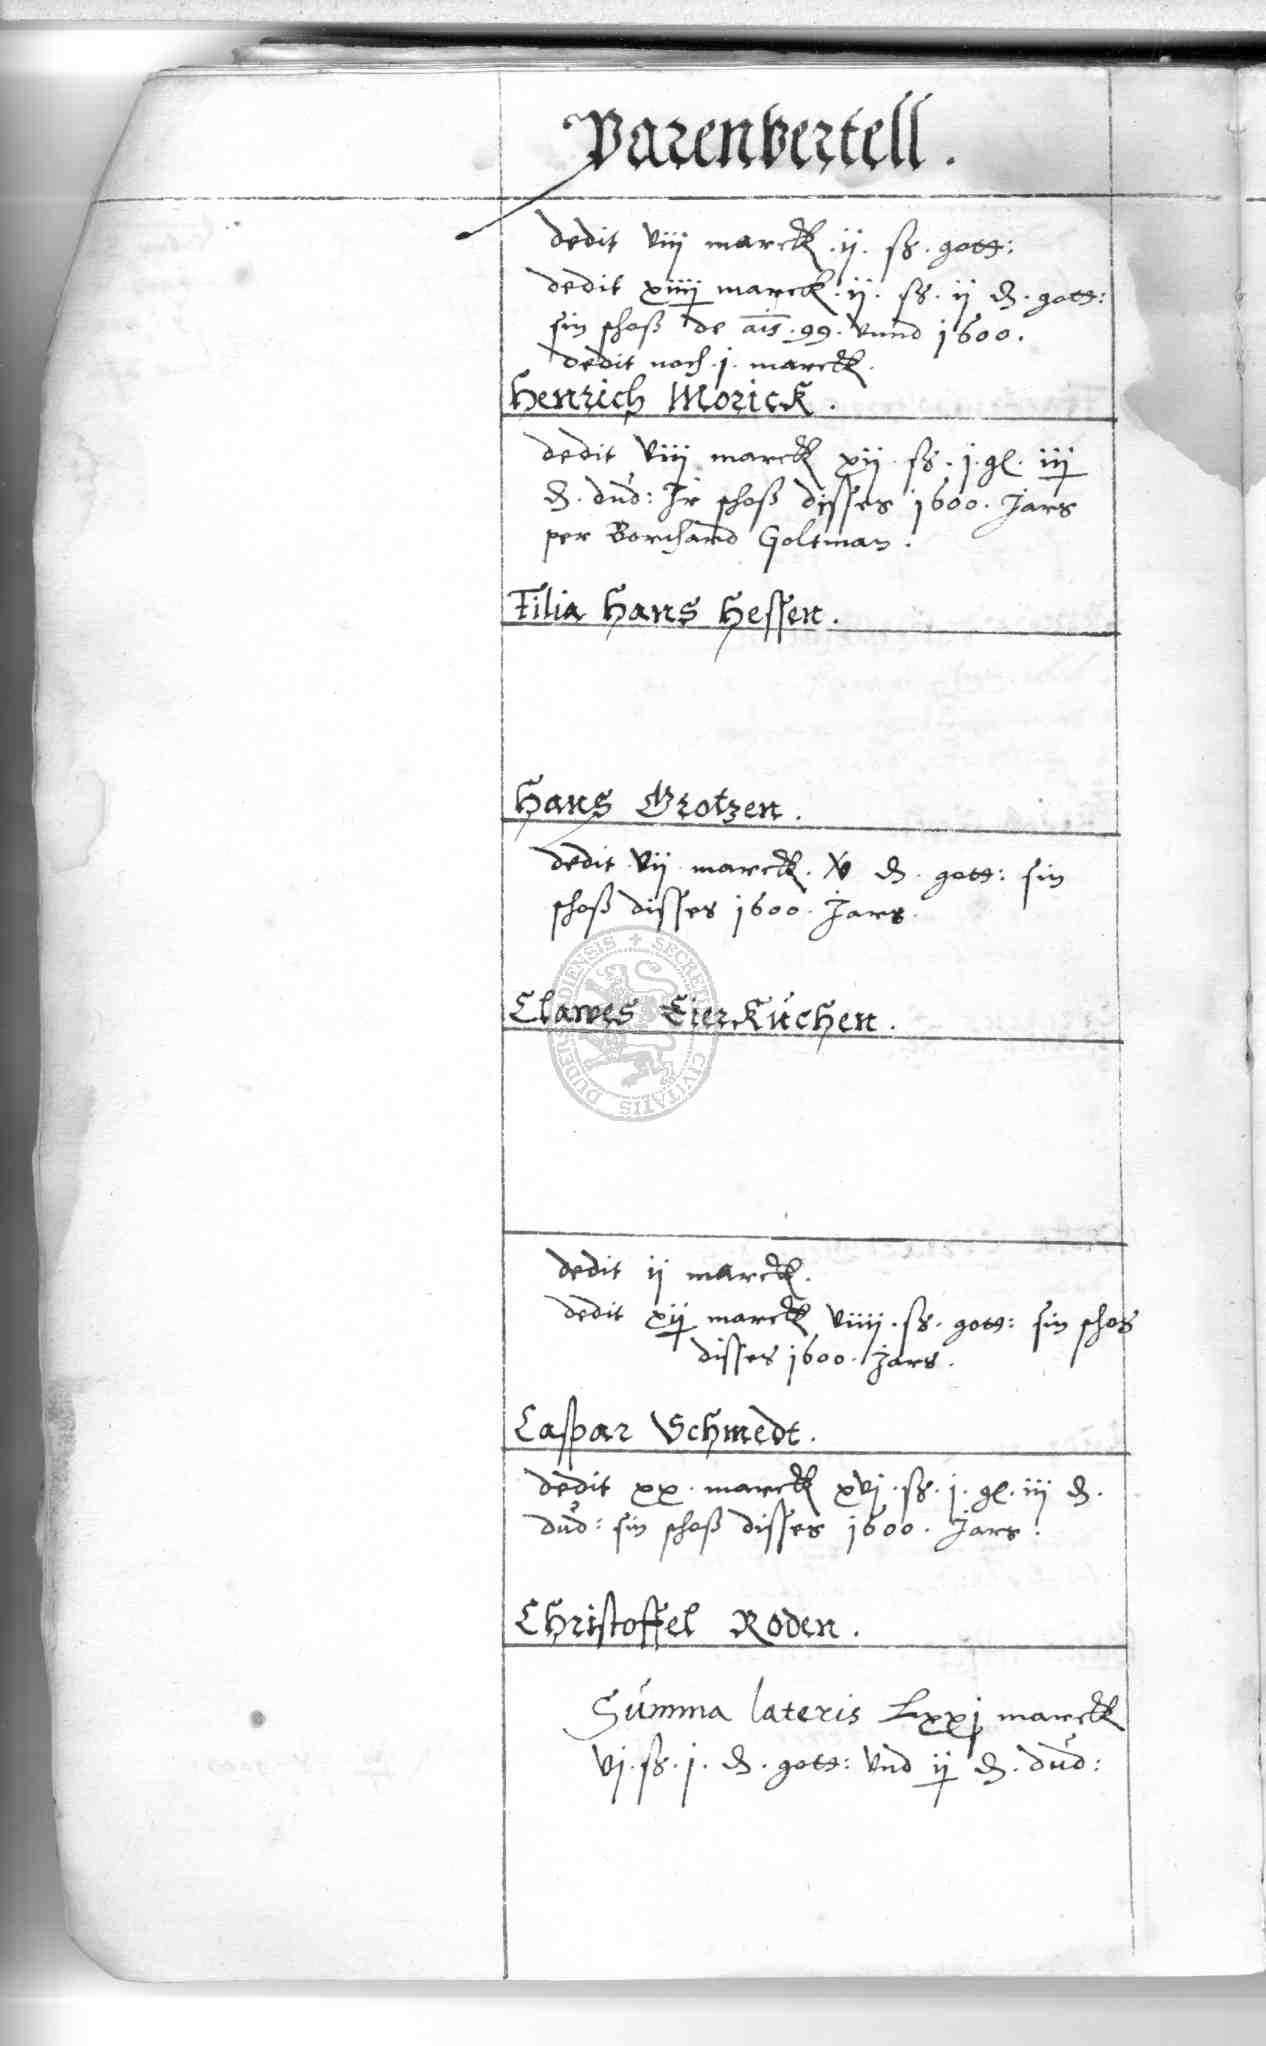 Parenvertell.
dedit viij marck .ij. ß. gott:
dedit xiiij marck .ij. ß. ij d. gott:
sin schoß de ais .99. vnnd 1600.
dedit noch .j. marck.
Henrich Morick.
dedit viij marck xij ß. j. gl. iij
d. dud: Jr schoß disses 1600. Jars
per Borchard Goltman.
Filia Hans Hessen.
Hans Grotzen.
dedit vij marck. xv d. gott: sin
schoß disses 1600. Jars.
Clawes Eierkuchen.
SECRET CIVITATIS DUDERS DIENSIS
dedit ij marck.
dedit xij marck viiij. ß. gott: sin schos
disses 1600. Jars.
Caspar Schmedt.
dedit xx. marck xvj. ß. j. gl. iij d.
dud: sin schoß disses 1600. Jars.
Christoffel Roden.
Summa lateris Lxxj marck
vj. ß. j. d. gott: vnd ij d. dud: